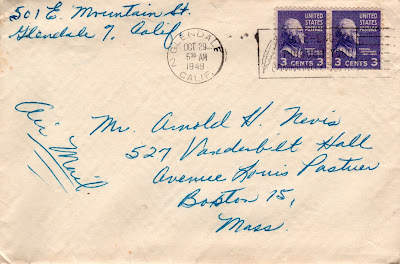 501 E. Mountain St.
Glendale 7, Calif.
GLENDALE
OCT 29
AM
1949
CALIF.
UNITED STATES
OF AMERICA
POSTAGE
3 CENTS 3
UNITED STATES
OF AMERICA
POSTAGE
3 CENTS 3
Air Mail
Mr. Arnold H. Nevis
527 Vanderbilt Hall
Avenue Louis Pasteur
Boston 15,
Mass.